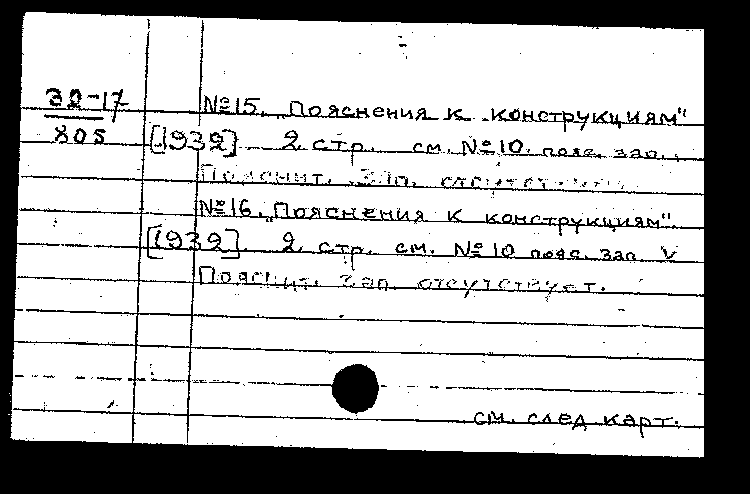 32-17
805
№15. „Пояснения к конструкциям"
[1932] 2 стр. см. №10. пояс. зап.
Пояснит. зап. отсутствует.
№16. „Пояснения к конструкциям".
[1932]. 2 стр. см. №10 пояс. зап. v
Пояснит. зап. отсутствует.
см. след карт.